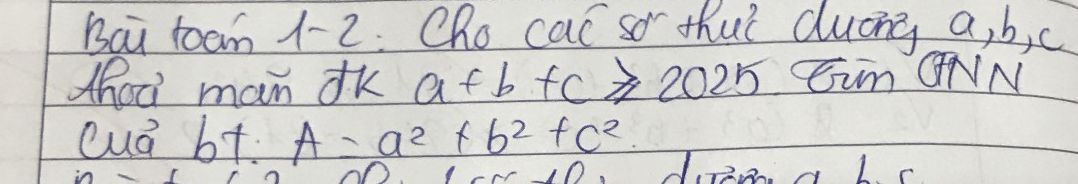 Bài toán 1-2: Cho các số thực dương a,b,c
thoả mãn đk a+b+c ≥ 2025 Tìm GTNN
Của bt: A = a² + b² + c².
dương a b c